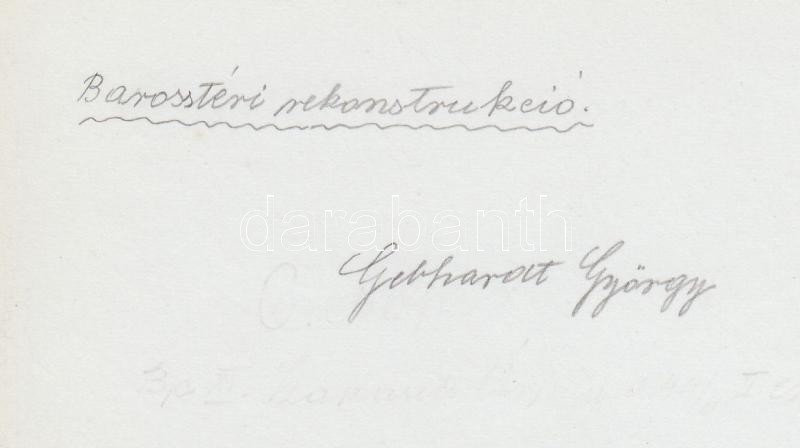 Barosstéri rekonstrukció.
darabanth
Gebhardt György
Bp